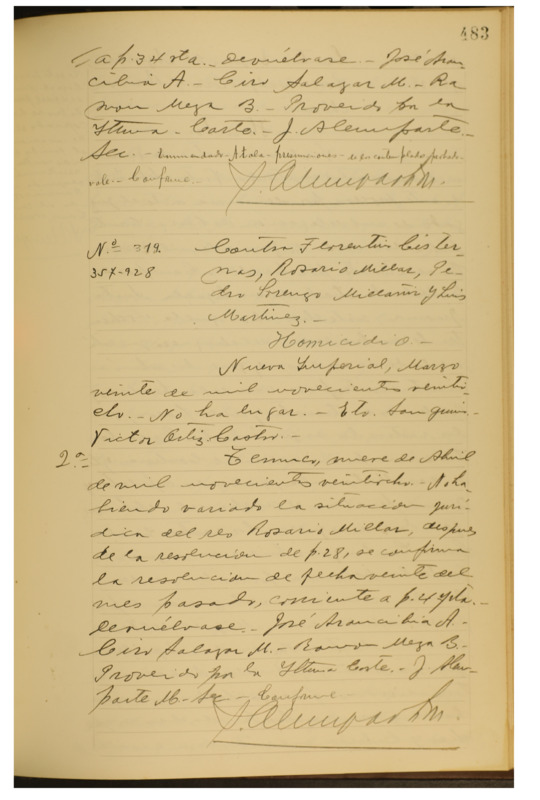 483
a p. 34 vta. - Devuélvase. - José Aran-
cibia A. - Ciro Salazar M. - Ra
mon Meza B. - Proveido por la
Iltma. Corte. - J. Alemparte.
Sec. - Enmendado
vale. - Conforme.
J. Alemparte M.
N.º 319. Contra Florentin Cister-
357-928 nas, Rosario Millar, Pe-
dro Lorenzo Y Luis
Martinez. -
Homicidio. -
Nueva Imperial, Marzo
veinte de mil novecientos veinti-
cho. - No ha lugar. -
Victor Ortiz Castro. -
2.a Temuco, nueve de Abril
de mil novecientos veintiocho. - No ha-
biendo variado la situación jurí-
dica del reo Rosario Millar, despues
de la resolucion de p. 28, se confirma
la resolucion de fecha veinte del
mes pasado, corriente a p. 47 vta. -
Devuélvase. - José Arancibia A. -
Ciro Salazar M. - Ramon Meza B. -
Proveido por la Iltma Corte. - J Alem-
parte M. - Sec. - Conforme
J. Alemparte M.